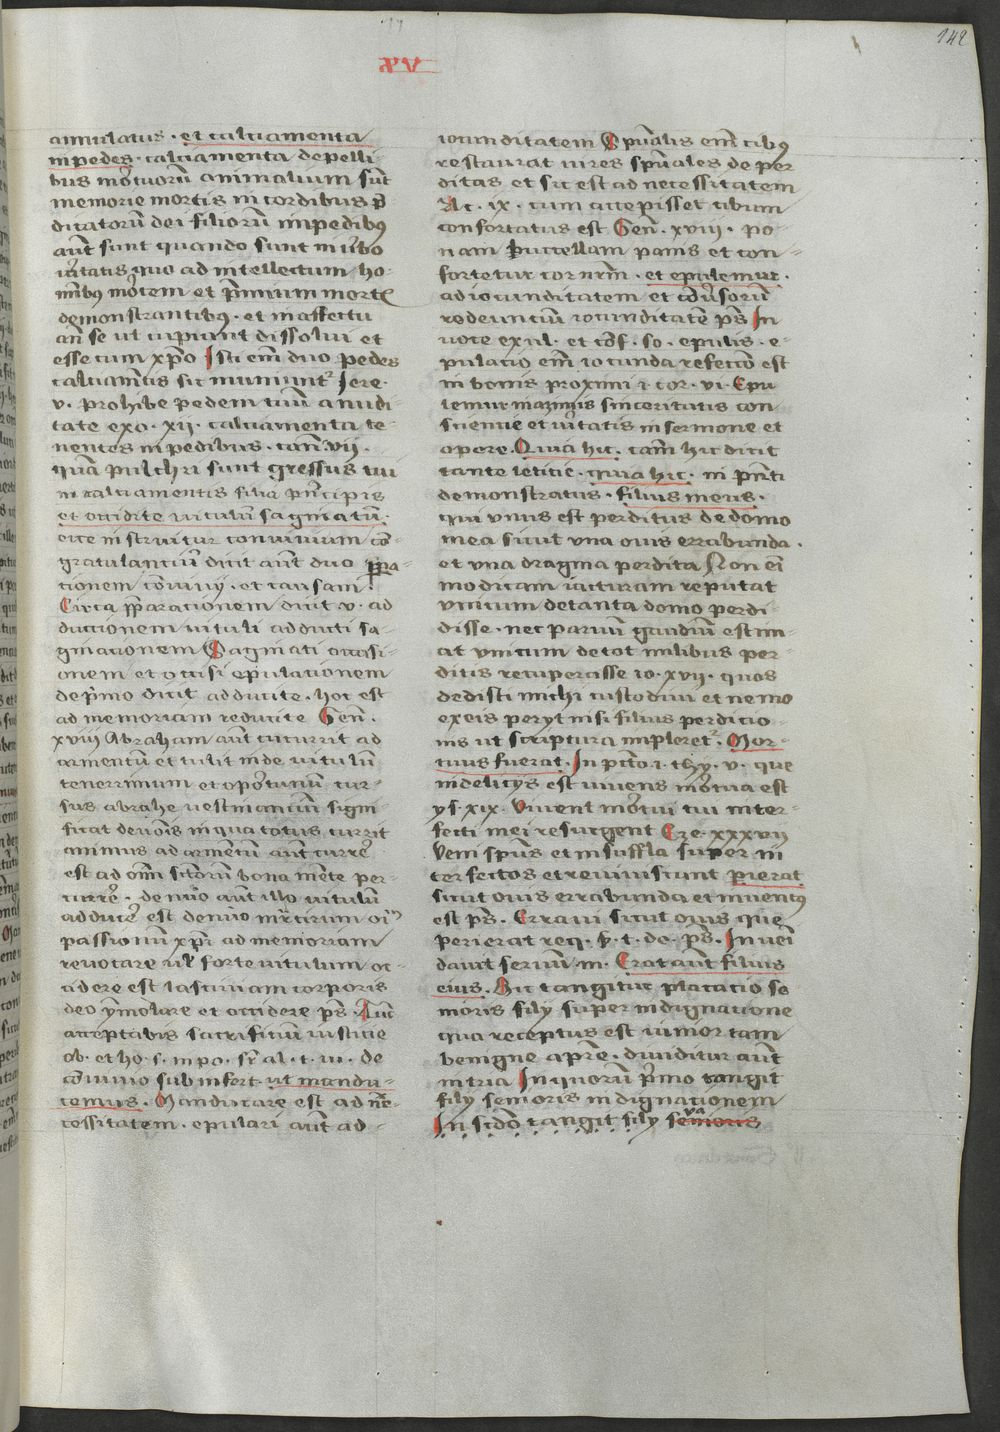 142
XV
annulatus · et calciamenta
in pedes · calciamenta de pelli
bus mortuorū animalium sūt
memorie mortis in cordibus p̄
dicatorū dei filiorū in pedibꝰ
aūt sunt quando sunt in vbo
v̓itatis quo ad intellectum ho-
mībꝰ mortem et p̄mium mortꝭ
demonstrantibꝰ · et in affectu
an̄ se ut cupiant dissolui et
esse cum xp̄o Isti em̄ duo pedes
calciamētis sic muniuntᷣ Jere ·
v · prohibe pedem tuū a nudi-
tate exo · xii · calciamenta te-
nentes in pedibus · can̄ · vii ·
quā pulchri sunt gressus tui
in calciamentis filia pn̄cipis
et occidite vitulū saginatū ·
ecce instruitur conuiuium cō-
gratulantiū dicit aūt duo p̄pa-
rationem cōuiuij · et causam ·
Circa p̄parationem dicit v · ad
ductionem vituli adducti sa-
ginationem Saginati occisi-
onem et occisi epulationem
de p̄mo dicit adducite · hoc est
ad memoriam reducite Gen̄ ·
xviij Abraham aūt cucurrit ad
armentū et tulit inde vitulū
tenerrimum et optimum cur-
sus abrahe uestinanciū signi-
ficat deuōis in qua totus currit
animus ad armentū aūt currē
est ad om̄i sctorū bona mēte per-
currē · de nūo aūt illo vitulū
adducē est denūo mr̄tirum oīꝫ
passionū xpī ad memoriam
reuocare ul̓ forte vitulum oc-
cidere est lasciuiam corporis
deo ymolare et occidere ps̄ · Tūc
acceptabis sacrificiū iusticie
ob · et ho · s · in po · sr̄ al · t · m · de
cōuiuio subinfert · ut mandu-
cemus · Manducare est ad ne-
cessitatem · epulari aūt ad-
iocunditatem Spūalis em̄ cibꝰ
restaurat vires spūales deper
ditas et sic est ad necessitatem
Ac · ix · cum accepisset cibum
confortatus est Gen̄ · xviij · po-
nam buccellam panis et con-
fortetur cor nrm̄ · et epulemur ·
ad iocunditatem et cōuersorū
redeunciū iocunditatē ps̄ In
voce exul · et cōf · so · epulis · e-
pulacio em̄ iocunda refectio est
in bonis proximi i · cor · vi · Epu
lemur in azimis sinceritatis con-
sciencie et v̓itatis in sermone et
opere · Quia hic · cam̄ hic dicit
tante leticie · quia hic · in pn̄ti
demonstratus · filius meus ·
qui vnus est perditus de domo
mea sicut vna ouis errabunda ·
et vna dragma perdita Non eī
modicam iacturam reputat
vnicum de tanta domo perdi-
disse · nec paruū gaudiū estim-
at vnicum de tot milibus per-
ditis recuperasse io · xvij · quos
dedisti michi custodiui et nemo
ex eis perijt nisi filius perdicio-
nis ut scriptura impleretᷣ · Mor-
tuus fuerat · In pcto i · thy · v · que
in delicijs est viuens mortua est
ys · xix · Viuent mortui tui inter-
fecti mei resurgent Eze · xxxvij
Veni spūs et insuffla super in
terfectos et reuiuiscant Perierat
sicut ouis errabunda et inuentꝰ
est ps̄ · Erraui sicut ouis que
perierat req · ẜ · t · do · ps̄ · Inueni
dauit seruū m · Erat aūt filius
eius · Hic tangitur placatio se-
nioris filij super indignatione
qua receptus est iunior tam
benigne a p̄re · diuiditur aūt
in tria In quorū p̄mo tangit
filij senioris indignationem
In scdō tangit filij senioris